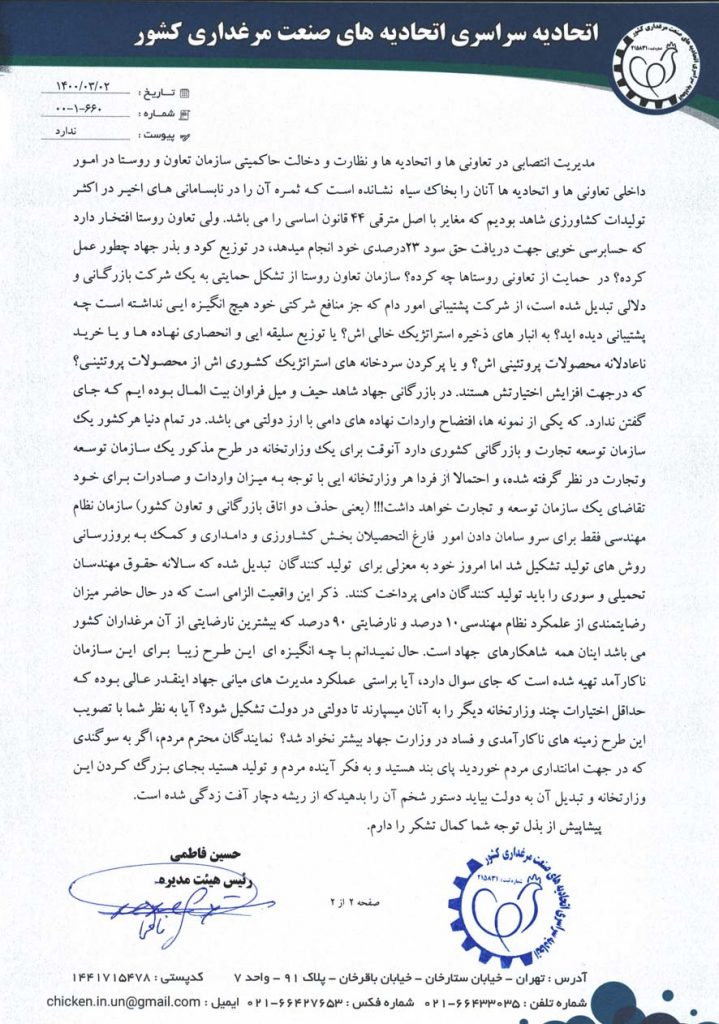 اتحادیه سراسری اتحادیه های صنعت مرغداری کشور
اتحادیه سراسری اتحادیه های صنعت مرغداری کشور
شماره ثبت: ۲۱۵۸۳۱
تاریخ : ۱۴۰۰/۰۳/۰۲
شماره : ۰۰-۱-۶۶۰
پیوست : ندارد
مدیریت انتصابی در تعاونی ها و اتحادیه ها و نظارت و دخالت حاکمیتی سازمان تعاون و روستا در امور
داخلی تعاونی ها و اتحادیه ها آنان را بخاک سیاه نشانده است که ثمره آن را در نابسامانی های اخیر در اکثر
تولیدات کشاورزی شاهد بودیم که مغایر با اصل مترقی ۴۴ قانون اساسی را می باشد. ولی تعاون روستا افتخار دارد
که حسابرسی خوبی جهت دریافت حق سود ۲۳درصدی خود انجام میدهد، در توزیع کود و بذر جهاد چطور عمل
کرده؟ در حمایت از تعاونی روستاها چه کرده؟ سازمان تعاون روستا از تشکل حمایتی به یک شرکت بازرگانی و
دلالی تبدیل شده است، از شرکت پشتیبانی امور دام که جز منافع شرکتی خود هیچ انگیزه ایی نداشته است چه
پشتیبانی دیده اید؟ به انبار های ذخیره استراتژیک خالی اش؟ یا توزیع سلیقه ایی و انحصاری نهاده ها و یا خرید
ناعادلانه محصولات پروتئینی اش؟ و یا پرکردن سردخانه های استراتژیک کشوری اش از محصولات پروتئینی؟
که درجهت افزایش اختیارتش هستند. در بازرگانی جهاد شاهد حیف و میل فراوان بیت المال بوده ایم که جای
گفتن ندارد. که یکی از نمونه ها، افتضاح واردات نهاده های دامی با ارز دولتی می باشد. در تمام دنیا هرکشور یک
سازمان توسعه تجارت و بازرگانی کشوری دارد آنوقت برای یک وزارتخانه در طرح مذکور یک سازمان توسعه
وتجارت در نظر گرفته شده، و احتمالا از فردا هر وزارتخانه ایی با توجه به میزان واردات و صادرات برای خود
تقاضای یک سازمان توسعه و تجارت خواهد داشت!!! (یعنی حذف دو اتاق بازرگانی و تعاون کشور) سازمان نظام
مهندسی فقط برای سرو سامان دادن امور فارغ التحصیلان بخش کشاورزی و دامداری و کمک به بروزرسانی
روش های تولید تشکیل شد اما امروز خود به معزلی برای تولید کنندگان تبدیل شده که سالانه حقوق مهندسان
تحمیلی و سوری را باید تولید کنندگان دامی پرداخت کنند. ذکر این واقعیت الزامی است که در حال حاضر میزان
رضایتمندی از علمکرد نظام مهندسی۱۰ درصد و نارضایتی ۹۰ درصد که بیشترین نارضایتی از آن مرغداران کشور
می باشد اینان همه شاهکارهای جهاد است. حال نمیدانم با چه انگیزه ای این طرح زیبا برای این سازمان
ناکارآمد تهیه شده است که جای سوال دارد، آیا براستی عملکرد مدیرت های میانی جهاد اینقدر عالی بوده که
حداقل اختیارات چند وزارتخانه دیگر را به آنان میسپارند تا دولتی در دولت تشکیل شود؟ آیا به نظر شما با تصویب
این طرح زمینه های ناکارآمدی و فساد در وزارت جهاد بیشتر نخواد شد؟ نمایندگان محترم مردم، اگر به سوگندی
که در جهت امانتداری مردم خوردید پای بند هستید و به فکر آینده مردم و تولید هستید بجای بزرگ کردن این
وزارتخانه و تبدیل آن به دولت بیاید دستور شخم آن را بدهیدکه از ریشه دچار آفت زدگی شده است.
پیشاپیش از بذل توجه شما کمال تشکر را دارم.
حسین فاطمی
رئیس هیئت مدیره
اتحادیه سراسری اتحادیه های صنعت مرغداری کشور
شماره ثبت: ۲۱۵۸۳۱
صفحه ۲ از ۲
آدرس : تهران - خیابان ستارخان - خیابان باقرخان - پلاک ۹۱ - واحد ۷ کدپستی : ۱۴۴۱۷۱۵۴۷۸
شماره تلفن : ۶۶۴۳۳۰۳۵-۰۲۱ شماره فکس : ۶۶۴۲۷۶۵۳-۰۲۱ ایمیل : chicken.in.un@gmail.com